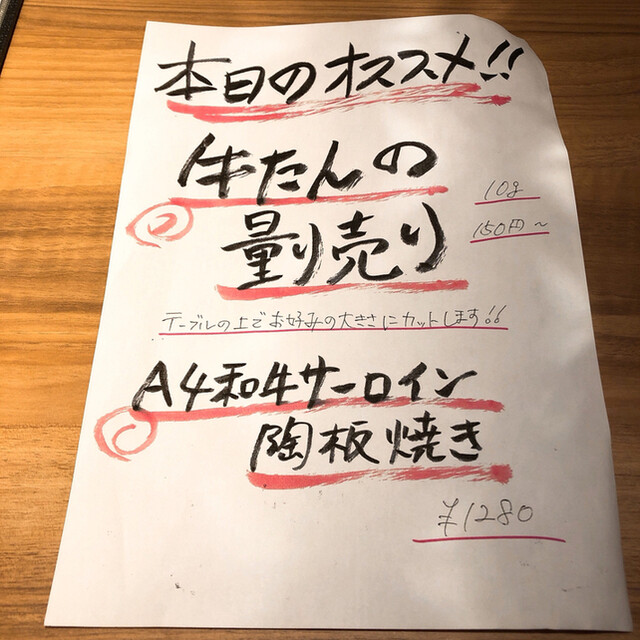 本日のオススメ!!
牛たんの
量り売り
10g
150円~
テーブルの上でお好みの大きさにカットします!!
A4和牛サーロイン
陶板焼き
¥1280